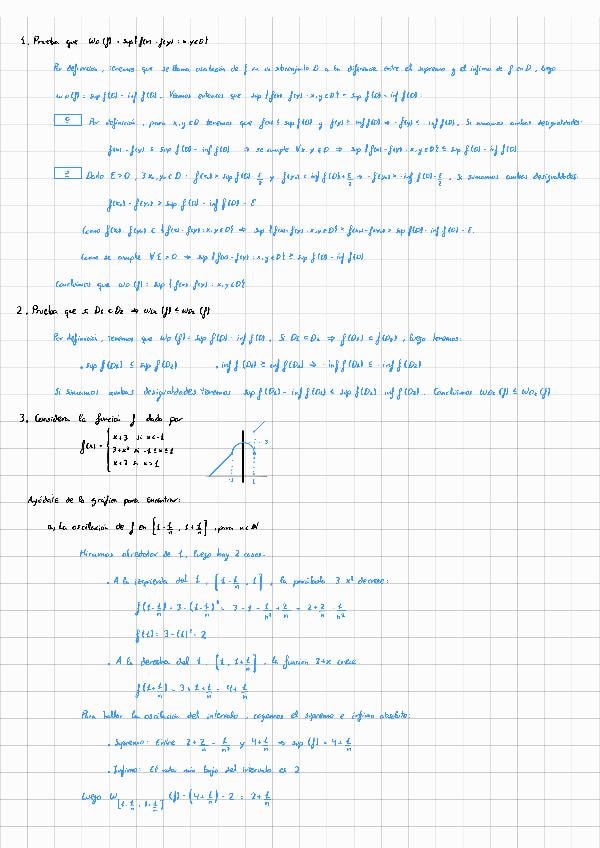 1. Prueba que ω_D(f) = sup{f(x) - f(y) : x, y ∈ D}
Por definición, tenemos que se llama oscilación de f en un subconjunto D a la diferencia entre el supremo y el ínfimo de f en D, luego
ω_D(f) = sup f(D) - inf f(D). Veamos entonces que sup {f(x) - f(y) : x, y ∈ D} = sup f(D) - inf f(D):
≤ Por definición, para x, y ∈ D tenemos que f(x) ≤ sup f(D) y f(y) ≥ inf f(D) ⇒ -f(y) ≤ -inf f(D). Si sumamos ambas desigualdades:
f(x) - f(y) ≤ sup f(D) - inf f(D) ⇒ se cumple ∀x, y ∈ D ⇒ sup {f(x) - f(y) : x, y ∈ D} ≤ sup f(D) - inf f(D)
≥ Dado ε > 0, ∃ x, y ∈ D : f(x) > sup f(D) - ε/2 y f(y) < inf f(D) + ε/2 ⇒ -f(y) > -inf f(D) - ε/2. Si sumamos ambas desigualdades:
f(x) - f(y) > sup f(D) - inf f(D) - ε
Como f(x) - f(y) ∈ {f(x) - f(y) : x, y ∈ D} ⇒ sup {f(x) - f(y) : x, y ∈ D} ≥ f(x) - f(y) > sup f(D) - inf f(D) - ε.
Como se cumple ∀ε > 0 ⇒ sup {f(x) - f(y) : x, y ∈ D} ≥ sup f(D) - inf f(D)
Concluimos que ω_D(f) = sup {f(x) - f(y) : x, y ∈ D}
2. Prueba que si D₁ ⊂ D₂ ⇒ ω_D₁(f) ≤ ω_D₂(f)
Por definición, tenemos que ω_D(f) = sup f(D) - inf f(D). Si D₁ ⊂ D₂ ⇒ f(D₁) ⊂ f(D₂), luego tenemos:
· sup f(D₁) ≤ sup f(D₂) · inf f(D₁) ≥ inf f(D₂) ⇒ -inf f(D₁) ≤ -inf f(D₂)
Si sumamos ambas desigualdades tenemos sup f(D₁) - inf f(D₁) ≤ sup f(D₂) - inf f(D₂). Concluimos ω_D₁(f) ≤ ω_D₂(f)
3. Considera la función f dada por
f(x) = { x+3 si x<-1
3+x² si -1≤x≤1
x+3 si x>1
3
-1 1
Ayúdate de la gráfica para encontrar:
a) La oscilación de f en [1 - 1/n, 1 + 1/n], para n ∈ N
Miramos alrededor de 1, luego hay 2 casos:
· A la izquierda del 1, [1 - 1/n, 1], la parábola 3 - x² decrece:
f(1 - 1/n) = 3 - (1 - 1/n)² = 3 - 1 - 1/n² + 2/n = 2 + 2/n - 1/n²
f(1) = 3 - (1)² = 2
· A la derecha del 1, [1, 1 + 1/n], la función 3+x crece
f(1 + 1/n) = 3 + 1 + 1/n = 4 + 1/n
Para hallar la oscilación del intervalo, cogemos el supremo e ínfimo absoluto:
· Supremo: Entre 2 + 2/n - 1/n² y 4 + 1/n ⇒ sup(f) = 4 + 1/n
· Ínfimo: El valor más bajo del intervalo es 2
Luego ω_[1 - 1/n, 1 + 1/n] (f) = (4 + 1/n) - 2 = 2 + 1/n